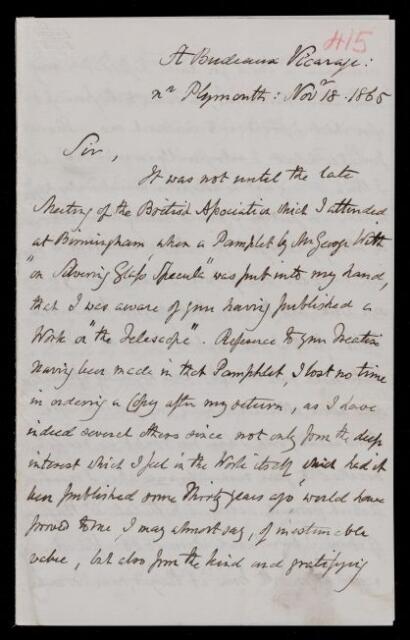 415
St Budeaux Vicarage:
nr Plymouth: Novr 18. 1865
Sir,
It was not until the late
Meeting of the British Association which I attended
at Birmingham, when a Pamphlet by Mr George With
"on Silvering Glass Specula" was put into my hand,
that I was aware of your having published a
Work on "the Telescope". Reference to your Treatise
having been made in that Pamphlet, I lost no time
in ordering a Copy after my return, as I have
indeed several others since not only from the deep
interest which I feel in the Work itself, which had it
been published some Thirty years ago would have
proved to me, I may almost say, of inestimable
value, but also from the kind and gratifying